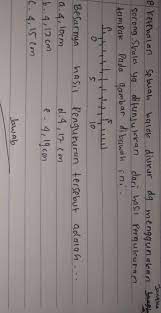 sebuah balok diukur dg menggunakan
sorong. Skala yg ditunjukkan dari hasil Pengukuran
tampak Pada gambar dibawah ini.
0 5 10
Besarnya hasil Pengukuran tersebut adalah...
a. 4,10cm d. 4,17cm
b. 4,12cm e. 4,19cm
c. 4,15cm
Jawab